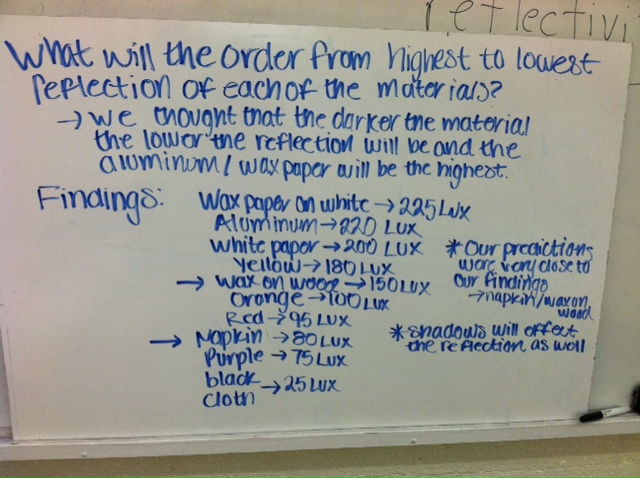 reflectivi
What will the order from highest to lowest
reflection of each of the materials?
→ we thought that the darker the material
the lower the reflection will be and the
aluminum/wax paper will be the highest.
Findings:
Wax paper on white → 225 Lux
Aluminum → 220 LUX
White paper → 200 LUX
Yellow → 180 LUX
→ Wax on wood → 150 LUX
Orange → 100 LUX
Red → 95 LUX
→ Napkin → 80 LUX
Purple → 75 LUX
black → 25 LUX
cloth
* Our predictions
were very close to
our findings
→ napkin/wax on
wood
* shadows will effect
the reflection as well